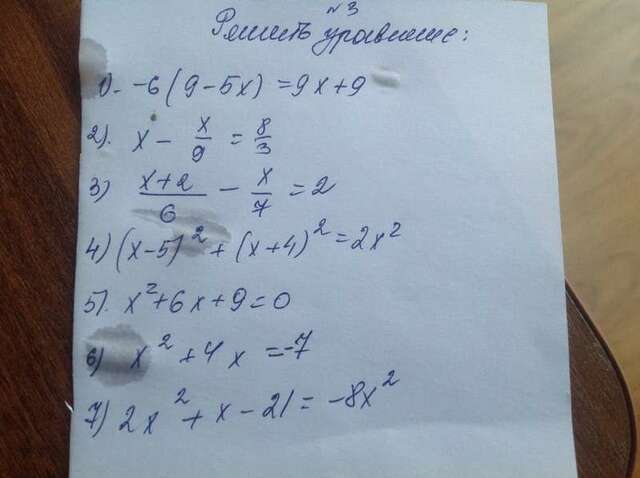 №3
Решить уравниние:
1). -6(9-5x) = 9x+9
2). x - x/9 = 8/3
3) (x+2)/6 - x/7 = 2
4) (x-5)² + (x+4)² = 2x²
5). x²+6x+9=0
6) x² + 4x = -7
7) 2x² + x - 21 = -8x²